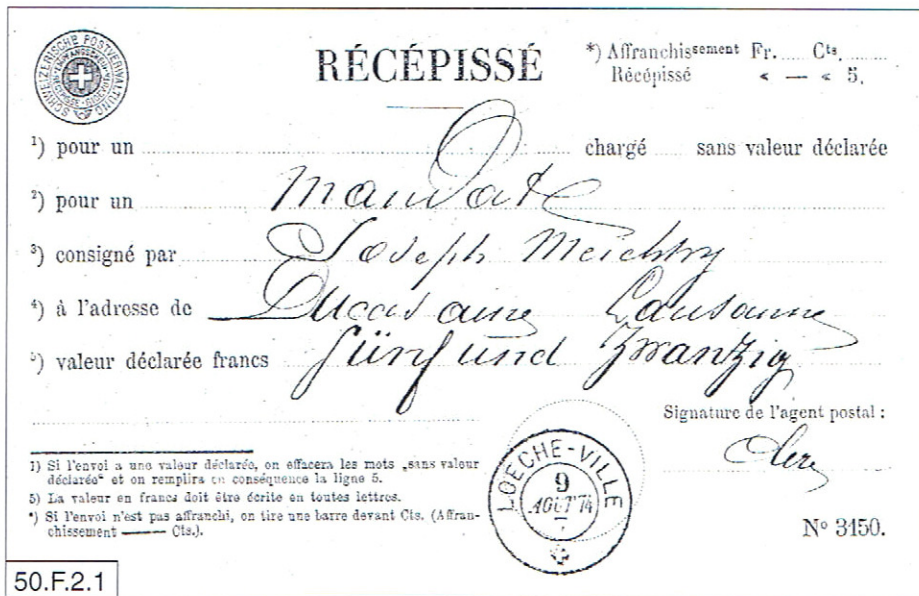 SCHWEIZERISCHE POSTVERWALTUNG
RÉCÉPISSÉ
*) Affranchissement Fr. ..... Cts. .......
Récépissé « — « 5.
1) pour un ........ chargé ..... sans valeur déclarée
2) pour un Mandat
3) consigné par Joseph Meichtry
4) à l'adresse de Lausanne
5) valeur déclarée francs fünf und Zwanzig
Signature de l'agent postal :
1) Si l'envoi a une valeur déclarée, on effacera les mots „sans valeur
déclarée" et on remplira en conséquence la ligne 5.
5) La valeur en francs doit être écrite en toutes lettres.
*) Si l'envoi n'est pas affranchi, on tire une barre devant Cts. (Affran-
chissement —— Cts.).
LOECHE-VILLE
9
AOUT 74
7
No 3150.
50.F.2.1